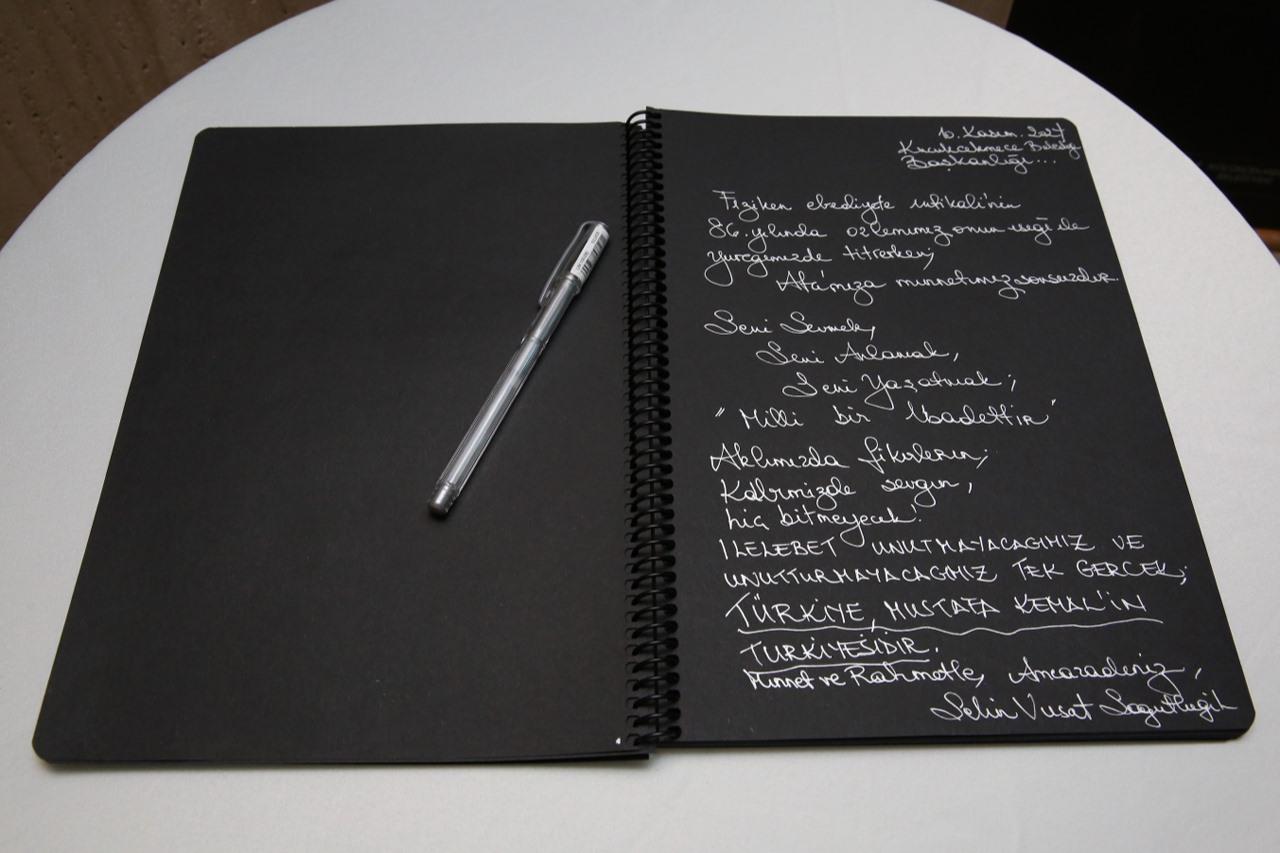 10. Kasım. 2024
Küçükçekmece Belediye
Başkanlığı...
Fiziken ebediyete intikali'nin
86. yılında özlemimiz onun ışığı ile
yüreğimizde titrerken;
Ata'mıza minnetimiz sonsuzdur.
Seni Sevmek,
Seni Anlamak,
Seni Yaşatmak;
"Milli bir İbadettir"
Aklımızda fikirlerin;
Kalbimizde sevgin,
hiç bitmeyecek!
İLELEBET UNUTMAYACAĞIMIZ VE
UNUTTURMAYACAĞIMIZ TEK GERÇEK;
TÜRKİYE, MUSTAFA KEMAL'İN
TÜRKİYESİDİR.
Minnet ve Rahmetle,
Selin Vuslat